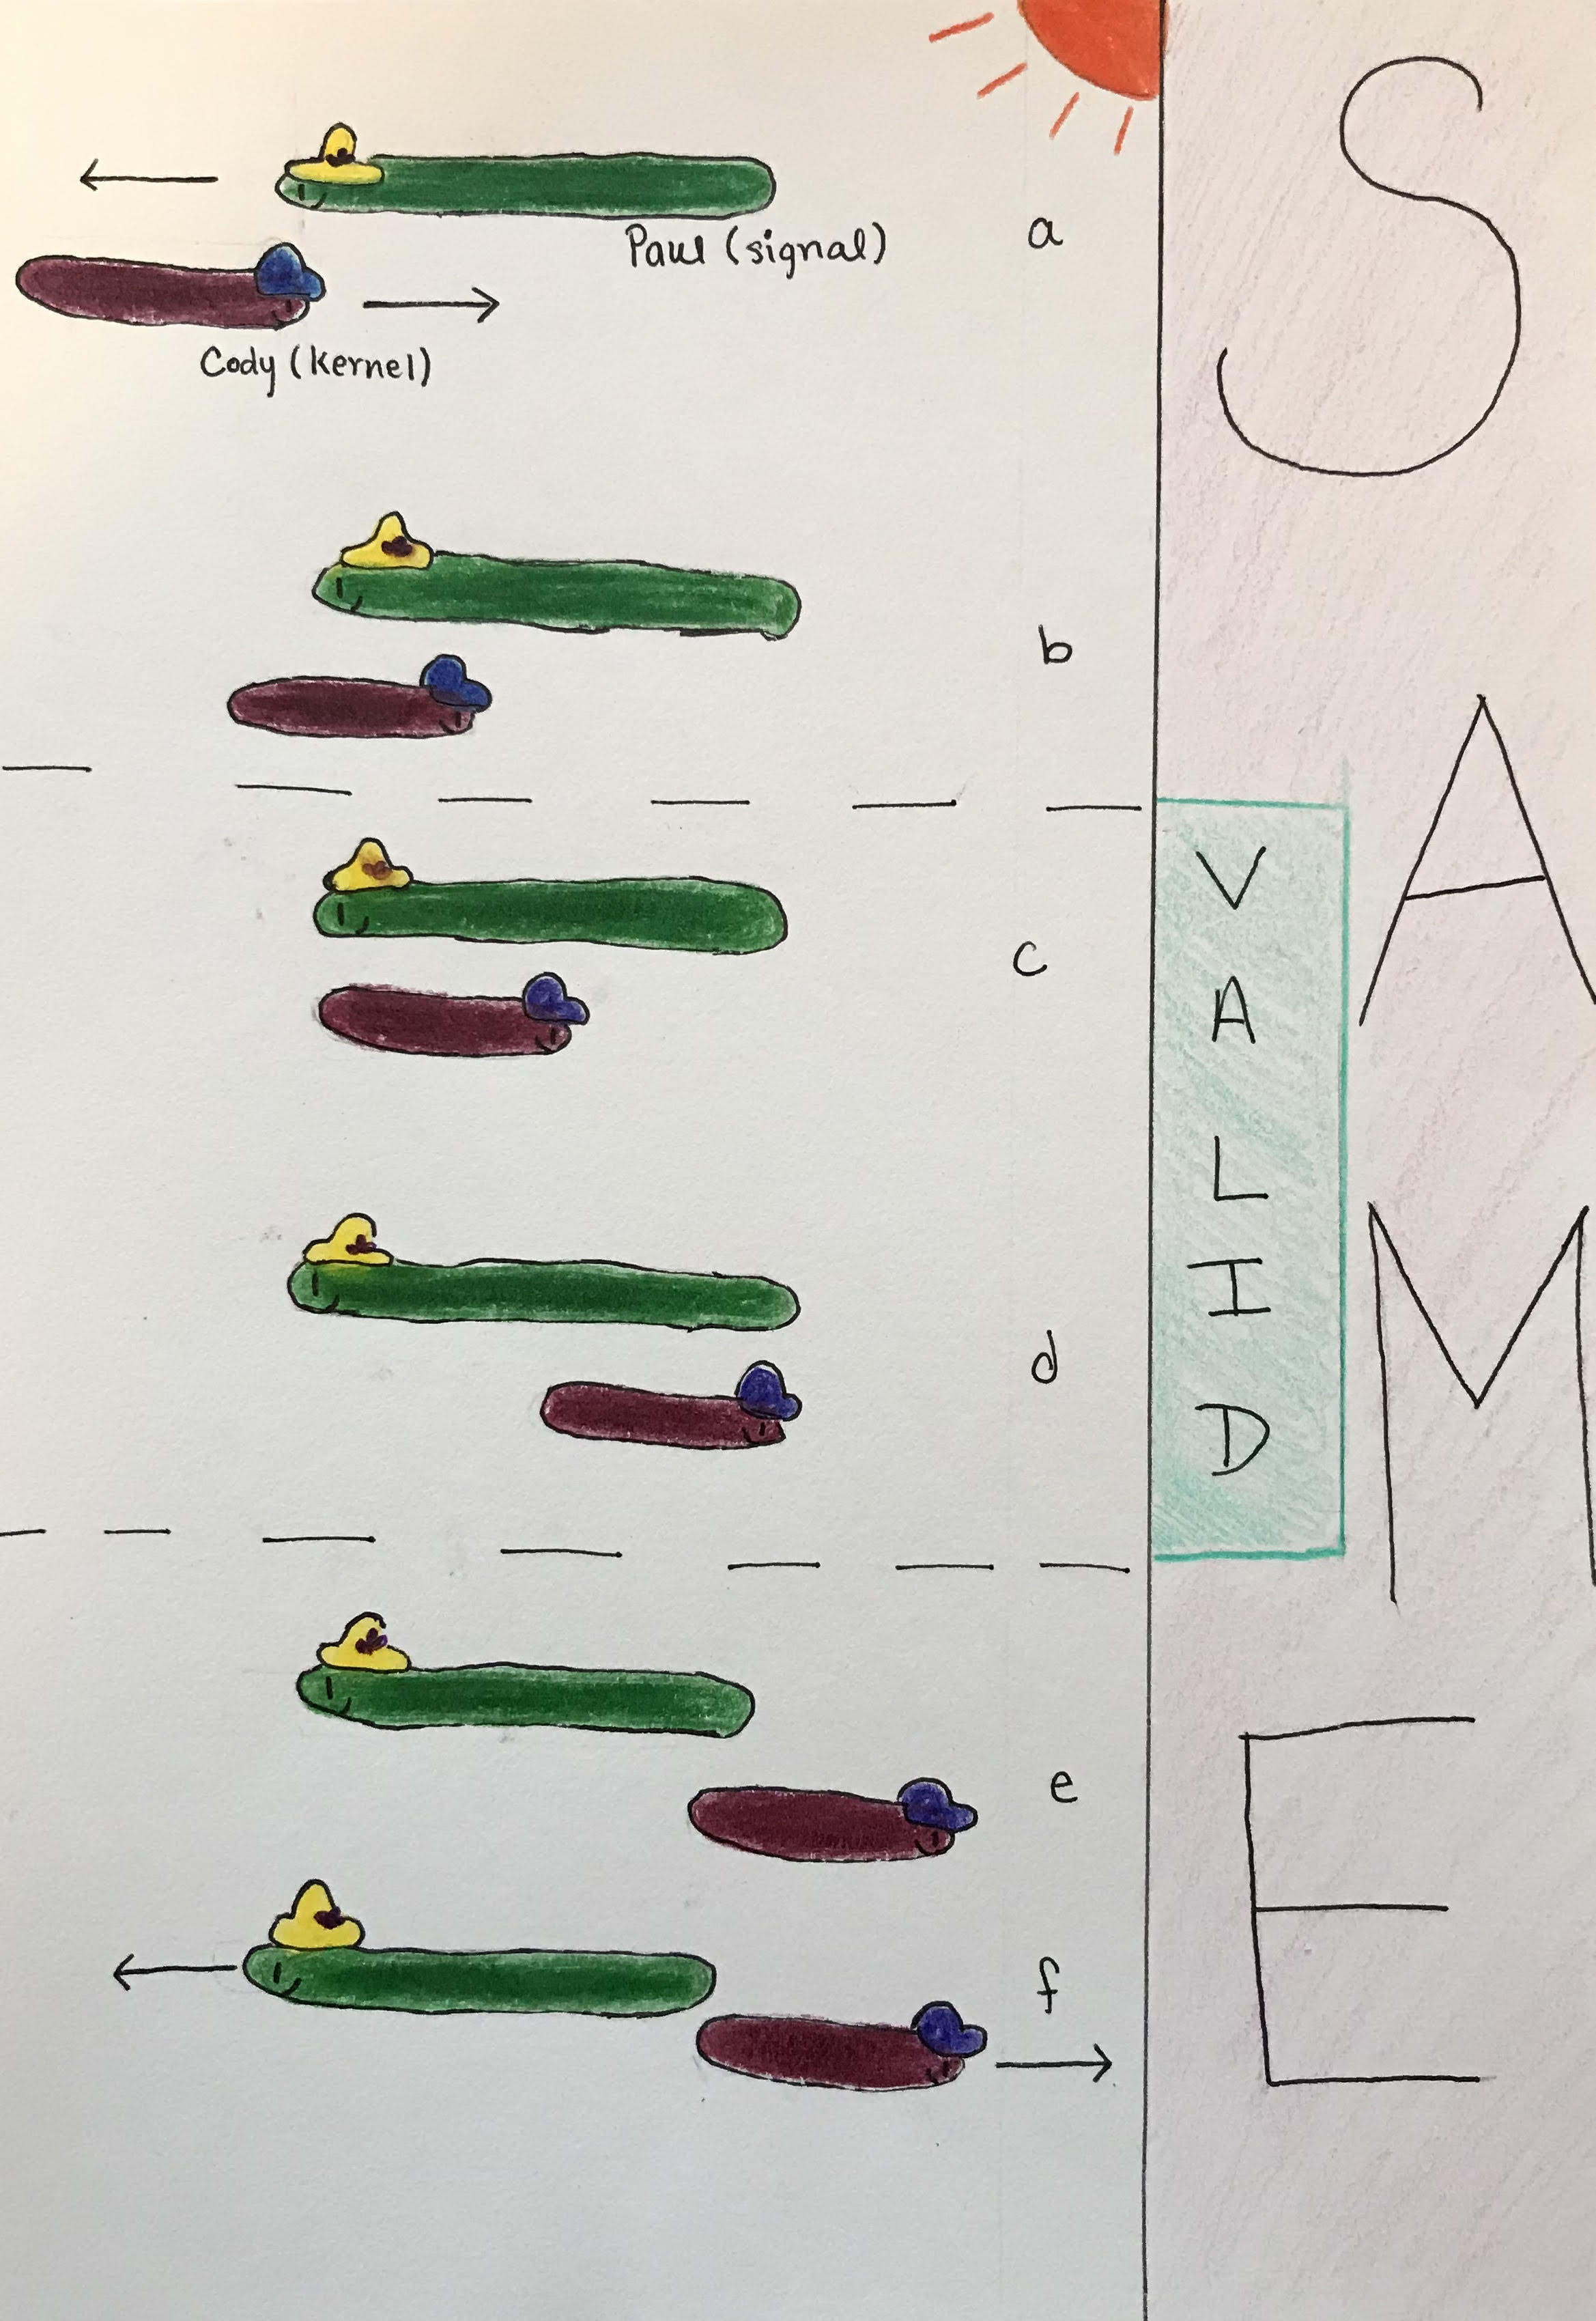 a
Paul (signal)
Cody (kernel)
b
c
d
e
f
VALID
SAME